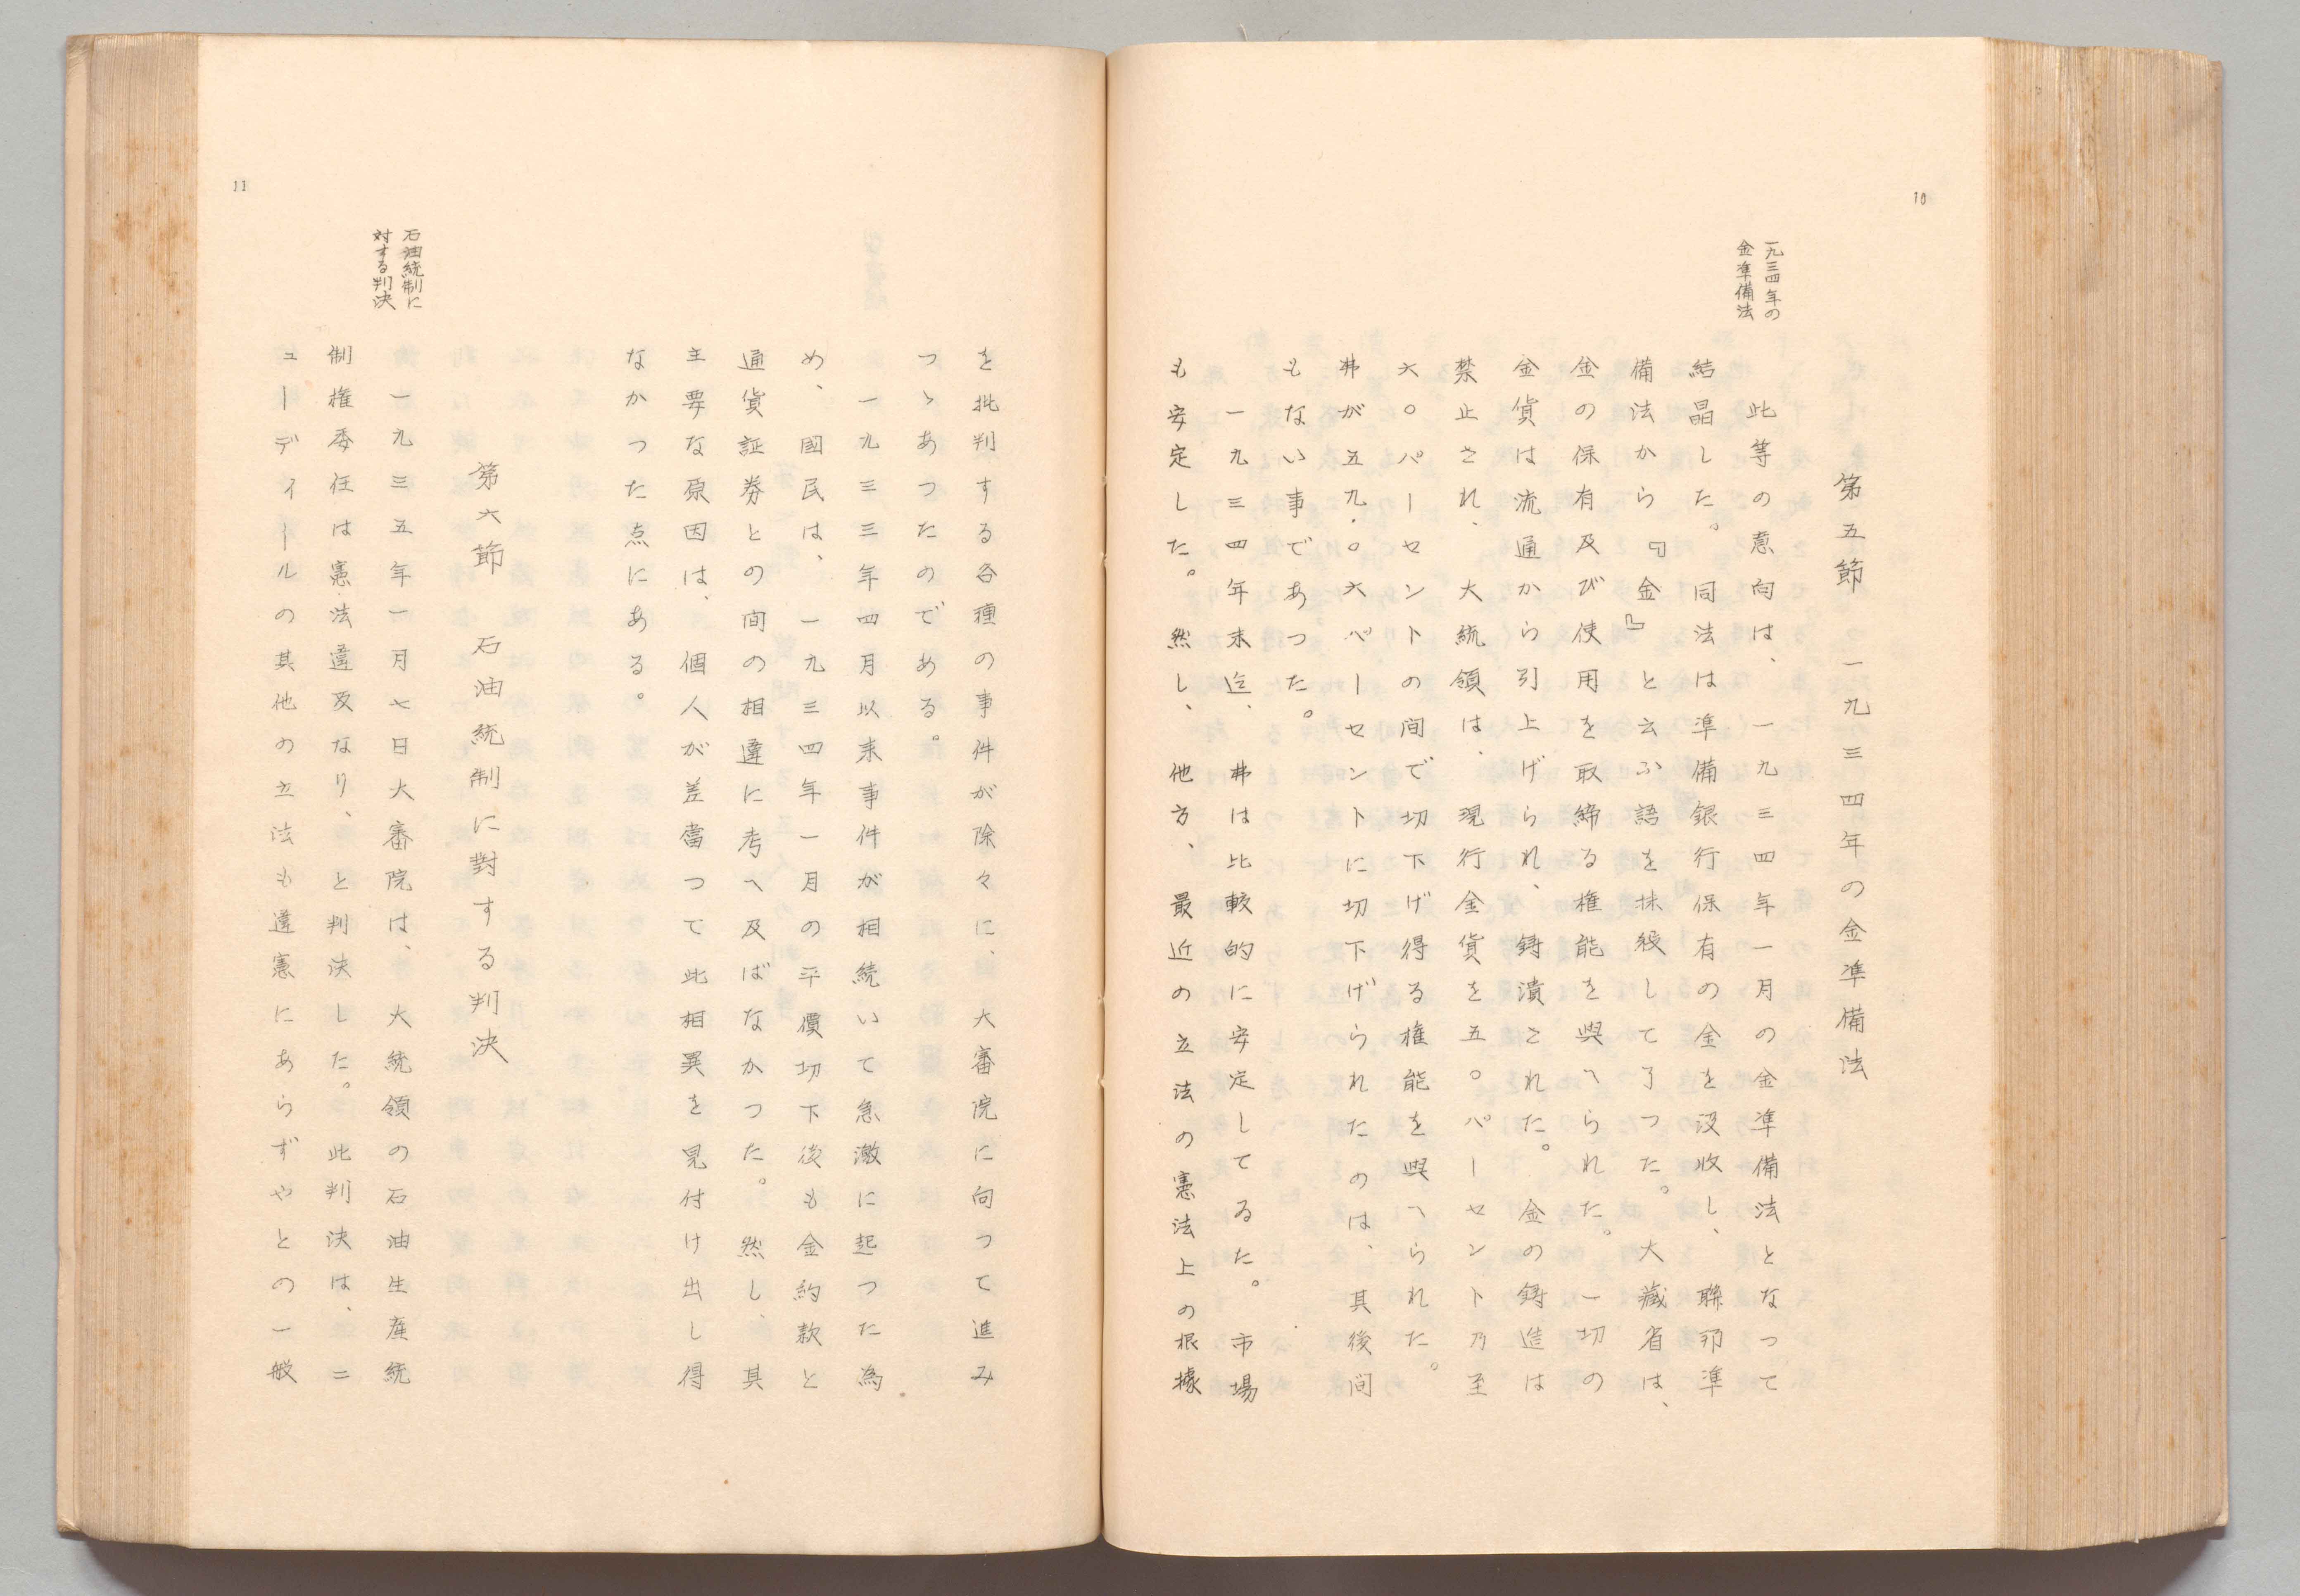 10
一九三四年の
金準備法
第五節　一九三四年の金準備法
此等の意向は、一九三四年一月の金準備法となつて
結晶した。同法は準備銀行保有の金を沒收し、聯邦準
備法から『金』と云ふ語を抹殺して了つた。大藏省は、
金の保有及び使用を取締る権能を與へられた。一切の
金貨は流通から引上げられ、鋳潰された。金の鋳造は
禁止され、大統領は、現行金貨を五〇パーセント乃至
六〇パーセントの間で切下げ得る権能を與へられた。
弗が五九・〇六パーセントに切下げられたのは、其後間
もない事であつた。
一九三四年末迄、弗は比較的に安定してゐた。市場
も安定した。然し、他方、最近の立法の憲法上の根據
11
を批判する各種の事件が除々に、大審院に向つて進み
つゝあつたのである。
一九三三年四月以来事件が相続いて急激に起つた為
め、國民は、一九三四年一月の平價切下後も金約款と
通貨証券との間の相違に考へ及ばなかつた。然し、其
主要な原因は、個人が差當つて此相異を見付け出し得
なかつた点にある。
石油統制に
対する判決
第六節　石油統制に對する判決
一九三五年一月七日大審院は、大統領の石油生産統
制権委任は憲法違反なり、と判決した。此判決は、ニ
ューディールの其他の立法も違憲にあらずやとの一般